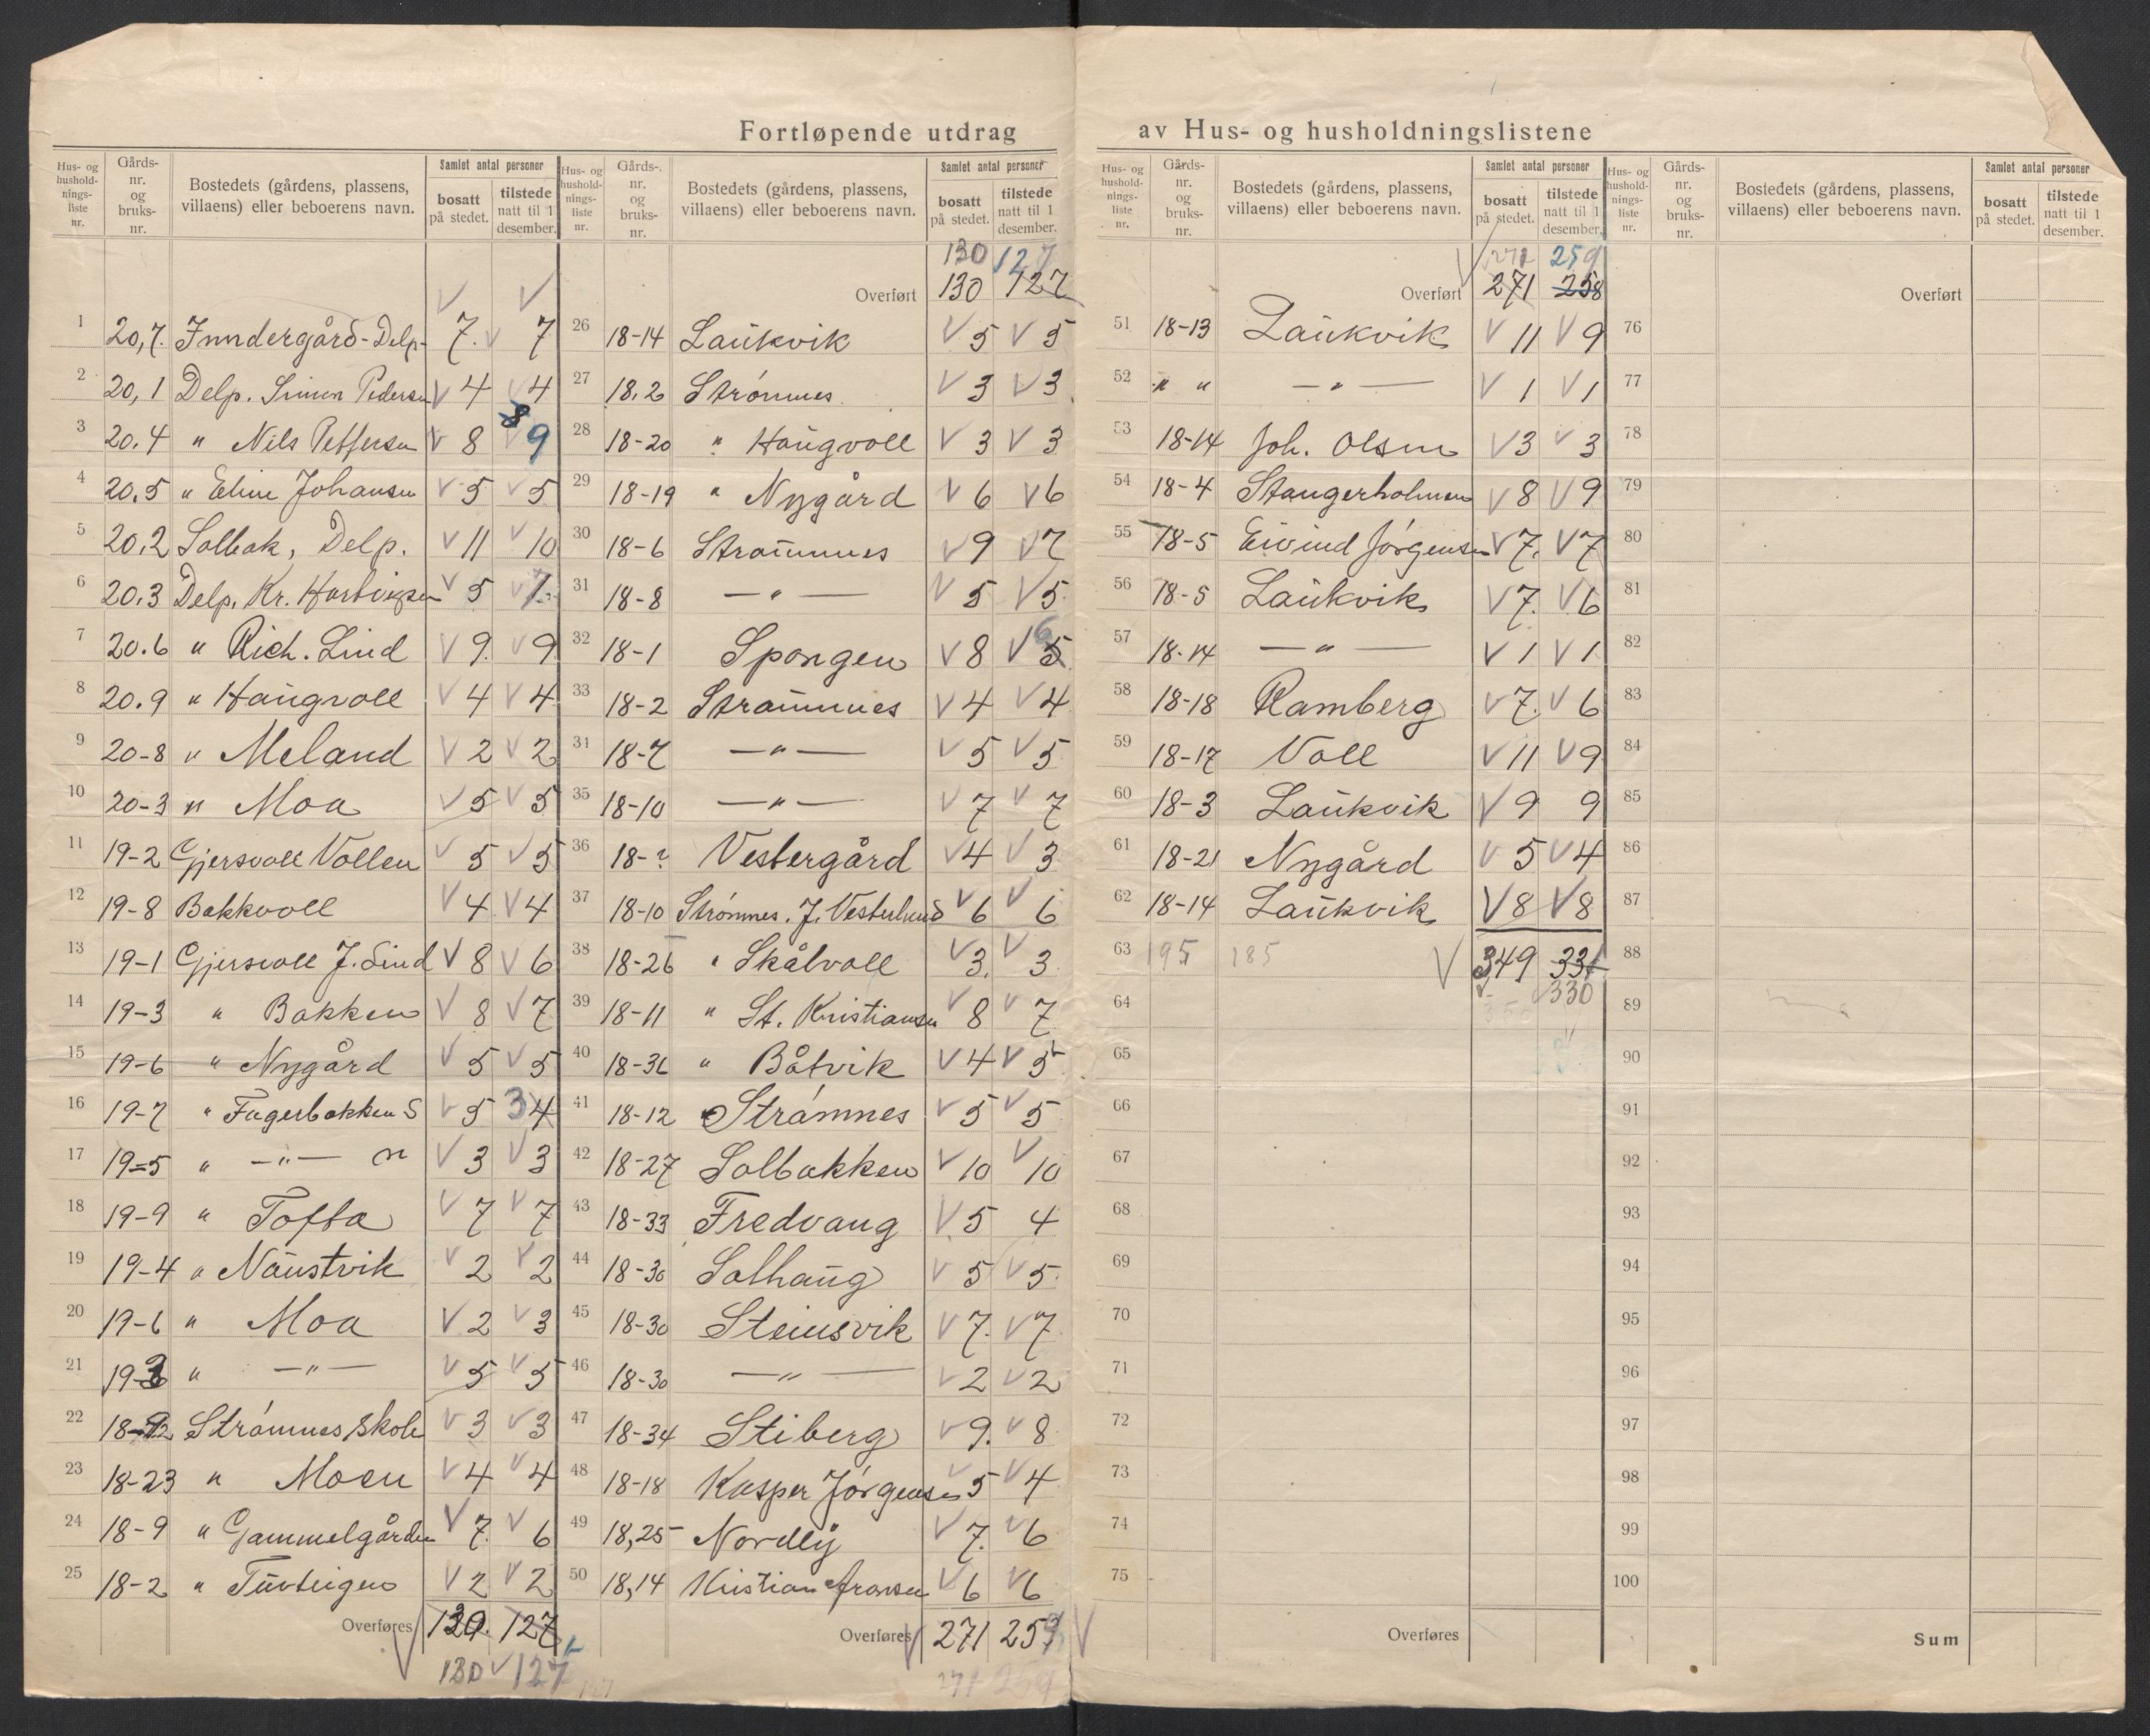 Fortløpende utdrag av Hus- og husholdningslistene
Hus- og hushold- nings- liste nr. Gårds- nr. og bruks- nr. Bostedets (gårdens, plassens, villaens) eller beboerens navn. Samlet antal personer bosatt på stedet. tilstede natt til 1 desember.
1 20,7. Inndergård-Delp- 7. 7
2 20,1 Delp. Simon Pedersen 4 4
3 20.4 " Nils Peffersen 8 8 9
4 20,5 " Eline Johansen 5 5
5 20,2 Solbak, Delp. 11 10
6 20,3 Delp. Kr. Hartvigsen 5 7
7 20.6 " Rich. Lind 9 9
8 20.9 " Haugvoll 4 4
9 20-8 " Meland 2 2
10 20-3 " Moa 5 5
11 19-2 Gjersvoll Vollen 5 5
12 19-8 Bakkvoll 4 4
13 19-1 Gjersvoll J. Lind 8 6
14 19-3 " Bakken 8 7
15 19-6 " Nygård 5 5
16 19-7 " Fagerbakken S 5 3 4
17 19-5 " -"- n 3 3
18 19-9 " Tofta 7 7
19 19-4 " Naustvik 2 2
20 19-6 " Moa 2 3
21 19-3 " -"- 5 5
22 18- Strømnes skole 3 3
23 18-23 " Moen 4 4
24 18-9 " Gammelgården 7. 6
25 18-2 " 2 2
Overføres 130. 127
130 127
Hus- og hushold- nings- liste nr. Gårds- nr. og bruks- nr. Bostedets (gårdens, plassens, villaens) eller beboerens navn. Samlet antal personer bosatt på stedet. tilstede natt til 1 desember.
130 127
Overført 130 127
26 18-14 Laukvik 5 5
27 18,2 Strømnes 3 3
28 18-20 " Haugvoll 3 3
29 18-19 " Nygård 6 6
30 18-6 Straumnes 9 7
31 18-8 -"- 5 5
32 18-1 Spongen 8 6 5
33 18-2 Straumnes 4 4
31 18-7 -"- 5 5
35 18-10 -"- 7 7
36 18-? Vestergård 4 3
37 18-10 Strømnes. J. Vesterlund 6 6
38 18-26 " Skålvoll 3. 3
39 18-11 " St. Kristiansen 8 7
40 18-36 " Båtvik 4 5
41 18-12 Strømnes 5 5
42 18-27 Solbakken 10 10
43 18-33 Fredvang 5 4
44 18-30 Solhaug 5 5
45 18-30 Steinsvik 7. 7
46 18-30 -"- 2 2
47 18-34 Stiberg 9. 8
48 18-18 Kasper Jørgensen 5 4
49 18,25 Nordly 7. 6
50 18,14 Kristian Aronsen 6 6
Overføres 271 259
271 259
Hus- og hushold- nings- liste nr. Gårds- nr. og bruks- nr. Bostedets (gårdens, plassens, villaens) eller beboerens navn. Samlet antal personer bosatt på stedet. tilstede natt til 1 desember.
271 259
Overført 271 258
51 18-13 Laukvik 11 9
52 " " -"- 1 1
53 18-14 Joh. Olsen 3 3
54 18-4 Stangerholmen 8 9
55 18-5 Eivind Jørgensen 7. 7
56 18-5 Laukvik 7. 6
57 18-14 -"- 1 1
58 18-18 Ramberg 7. 6
59 18-17 Voll 11 9
60 18-3 Laukvik 9 9
61 18-21 Nygård 5 4
62 18-14 Laukvik 8 8
63 195 185 349 331
64 330
65
66
67
68
69
70
71
72
73
74
75
Overføres
Hus- og hushold- nings- liste nr. Gårds- nr. og bruks- nr. Bostedets (gårdens, plassens, villaens) eller beboerens navn. Samlet antal personer bosatt på stedet. tilstede natt til 1 desember.
Overført
76
77
78
79
80
81
82
83
84
85
86
87
88
89
90
91
92
93
94
95
96
97
98
99
100
Sum